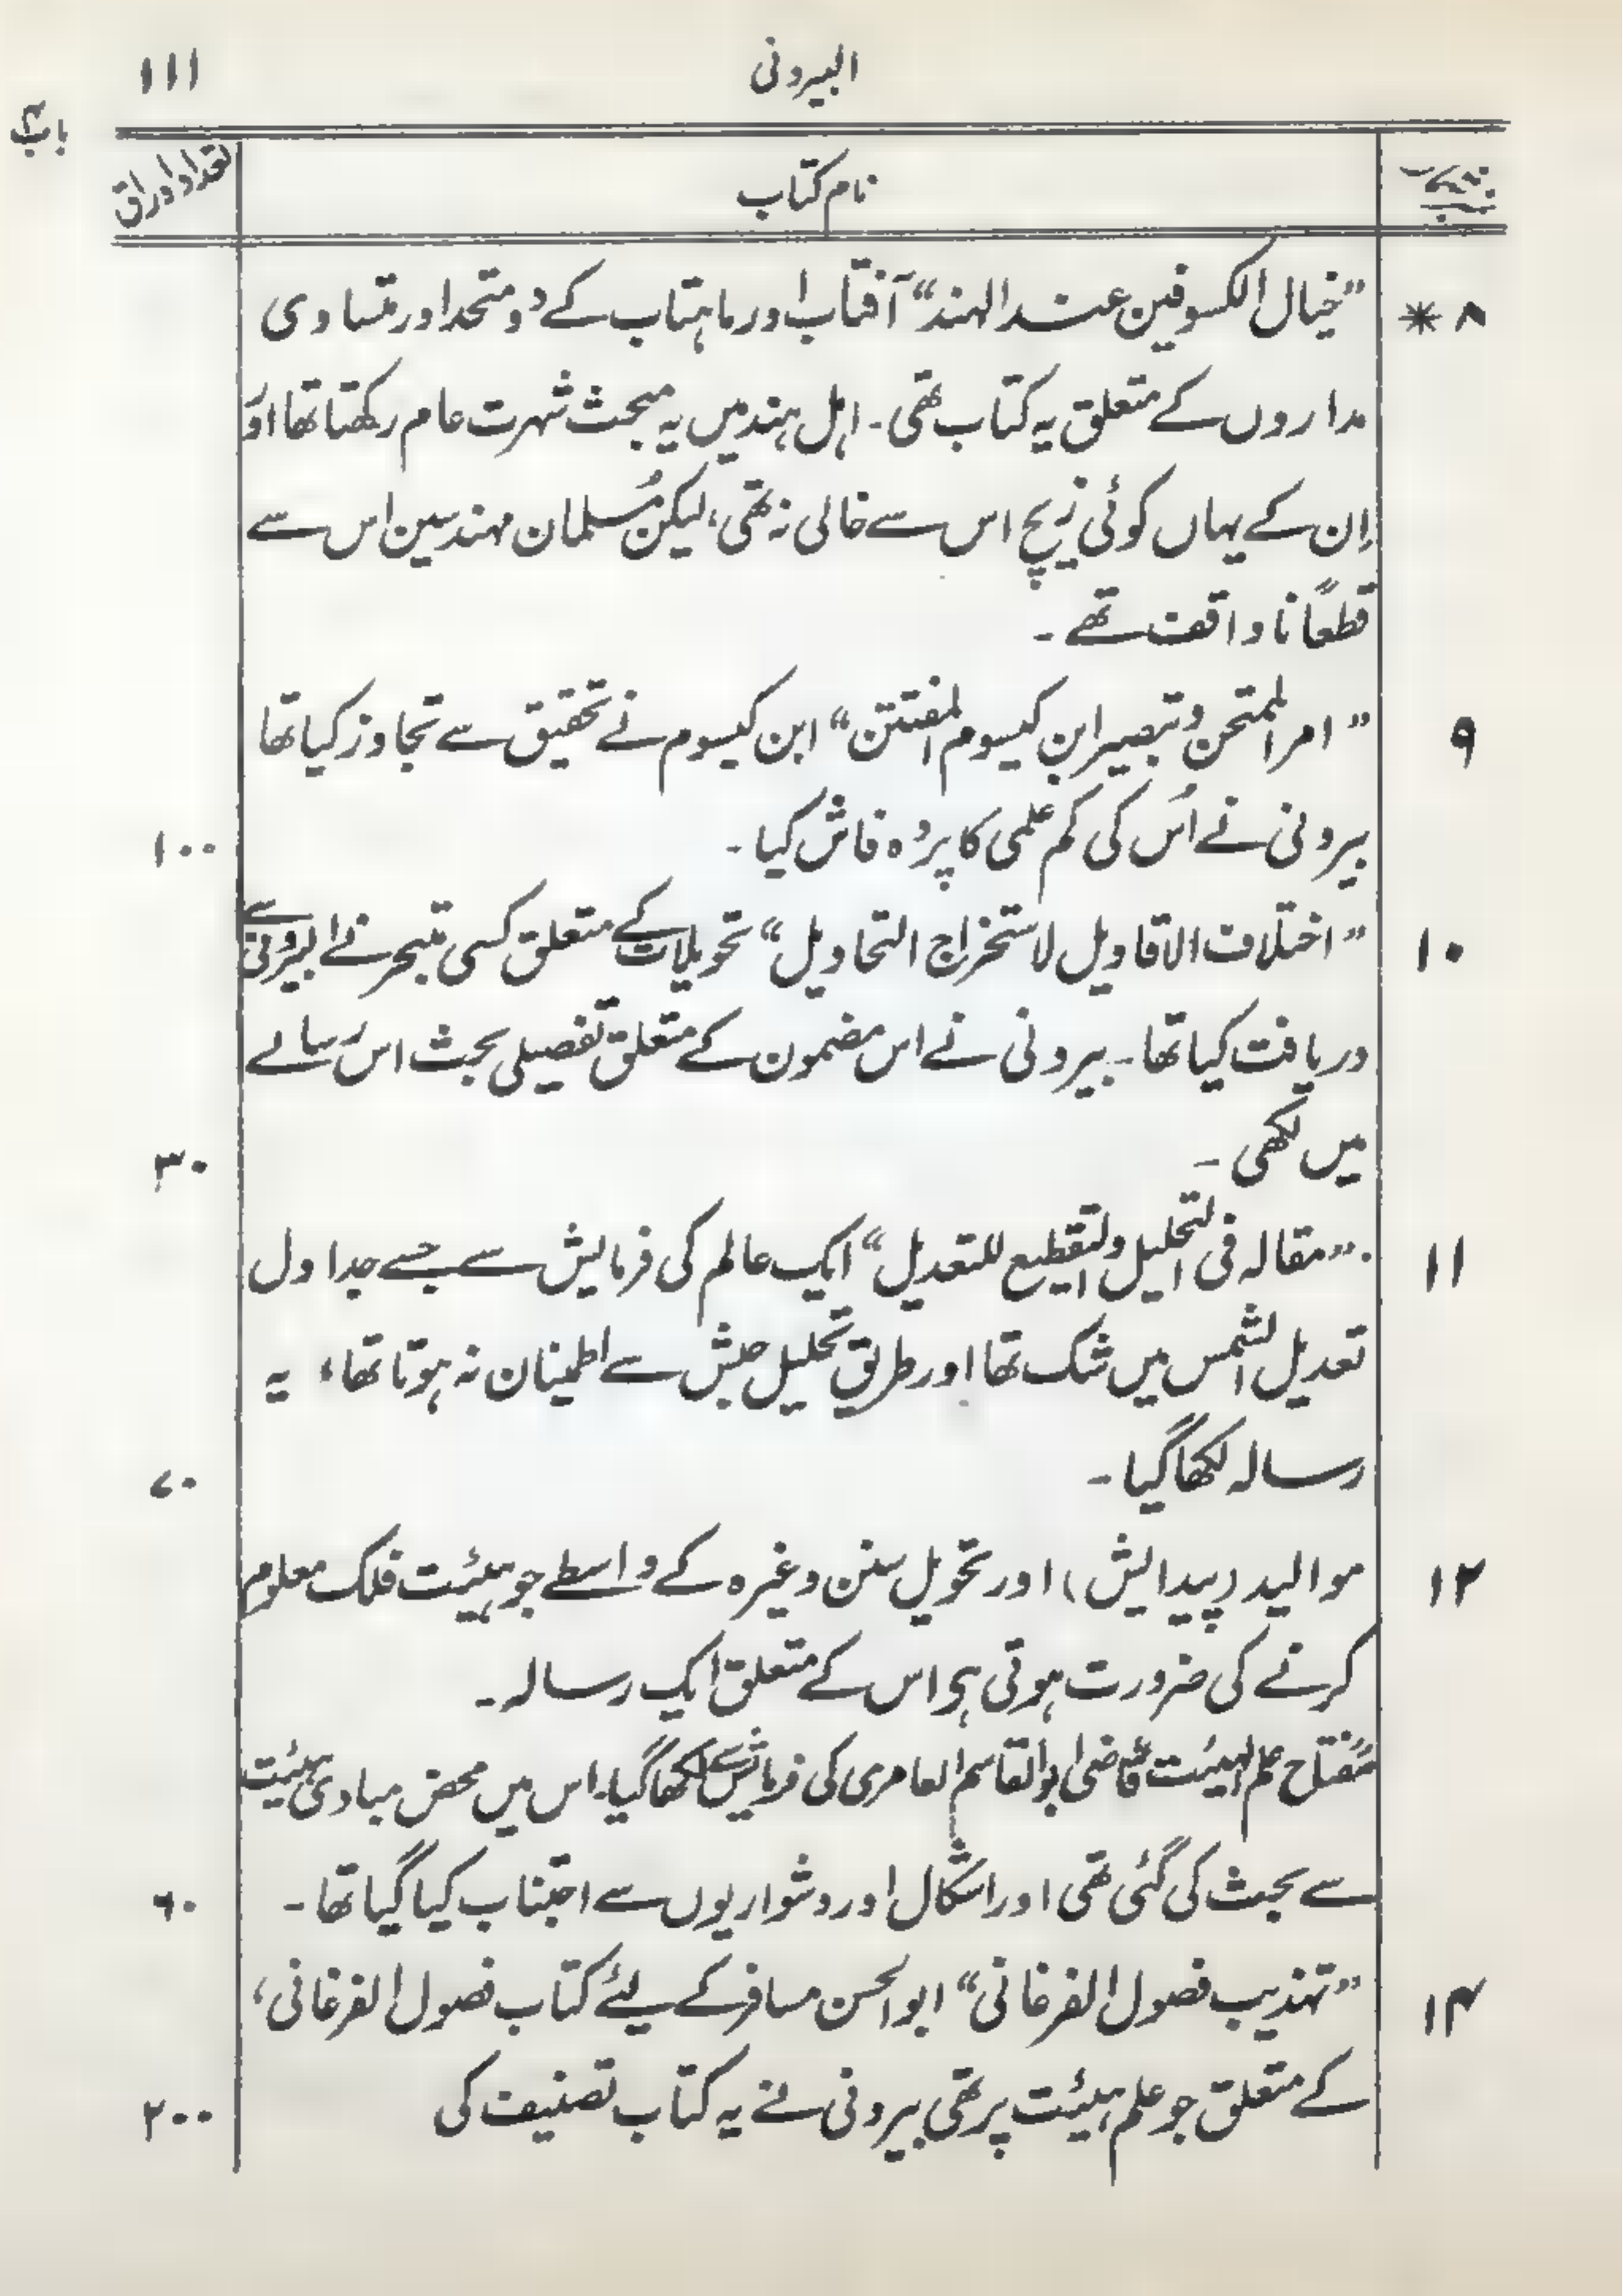 البیرونی
۱۱۱
باب ۴
نمبر کتاب
نام کتاب
تعداد اوراق
۸ *
”خیال الکسوفین عند الہند“ آفتاب اور ماہتاب کے دو متحد اور متساوی
مداروں کے متعلق یہ کتاب تھی۔ اہل ہند میں یہ مبحث شہرت عام رکھتا تھا اور
اِن کے یہاں کوئی زیچ اس سے خالی نہ تھی، لیکن مُسلمان مہندسین اس سے
قطعًا ناواقف تھے۔
۹
”امر الممتحن و تبصیر ابن کیسوم المفتتن“ ابن کیسوم نے تحقیق سے تجاوز کیا تھا
بیرونی نے اُس کی کم علمی کا پردہ فاش کیا۔
۱۰۰
۱۰
”اختلاف الاقاویل لاستخراج التحاویل“ تحویلات کے متعلق کسی متبحر نے البیرونی سے
دریافت کیا تھا۔ بیرونی نے اس مضمون کے متعلق تفصیلی بحث اس رسالے
میں لکھی۔
۳۰
۱۱
”مقالہ فی التحلیل والتقطیع للتعدیل“ ایک عالم کی فرمایش سے جسے جداول
تعدیل الشمس میں شک تھا اور طریق تحلیل حبش سے اطمینان نہ ہوتا تھا، یہ
رسالہ لکھا گیا۔
۷۰
۱۲
موالید (پیدایش) اور تحویل سنن وغیرہ کے واسطے جو ہیئت فلک معلوم
کرنے کی ضرورت ہوتی ہی اس کے متعلق ایک رسالہ۔
مفتاح علم الہیئت“ قاضی ابوالقاسم العامری کی فرمایش سے لکھا گیا۔ اس میں محض مبادی ہیئت
سے بحث کی گئی تھی اور اشکال اور دشواریوں سے اجتناب کیا گیا تھا۔
۶۰
۱۴
”تہذیب فصول الفرغانی“ ابو الحسن مسافر کے لیئے کتاب فصول الفرغانی،
کے متعلق جو علم ہیئت پر تھی بیرونی نے یہ کتاب تصنیف کی
۲۰۰